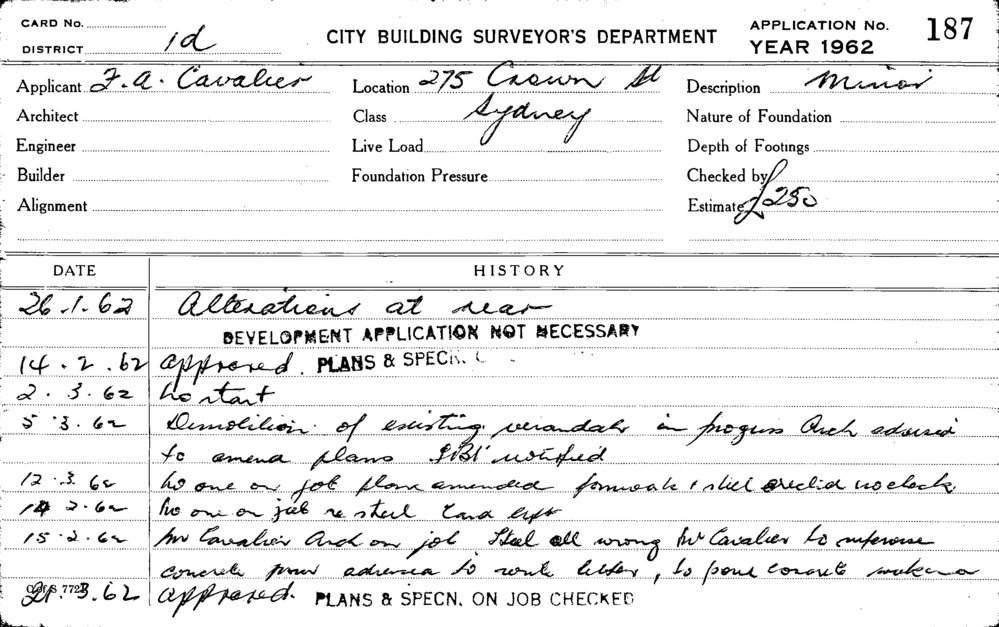 CARD No.
DISTRICT 1d
CITY BUILDING SURVEYOR'S DEPARTMENT
APPLICATION No. 187
YEAR 1962
Applicant F.A. Cavalier Location 275 Crown St Description Minor
Architect Class Sydney Nature of Foundation
Engineer Live Load Depth of Footings
Builder Foundation Pressure Checked by
Alignment Estimate £250
DATE HISTORY
26.1.62 Alterations at rear
DEVELOPMENT APPLICATION NOT NECESSARY
14.2.62 approved. PLANS & SPECN.
2.3.62 no start
5.3.62 Demolition of existing verandah in progress Arch advised
to amend plans notified
12.3.62 no one on job plans amended formwork & steel erected no check
no one on job re steel Card left
Mr Cavalier Arch on job Steel all wrong Mr Cavalier to supervise
concrete pour to write letter, to pour concrete
21.3.62 approved. PLANS & SPECN. ON JOB CHECKED